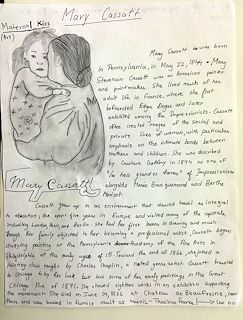 Mary Cassatt
Maternal Kiss
(Art)
Mary Cassatt is who born
in Pennsylvania, in May 22, 1844. Mary
Stevenson Cassatt was an American painter
and printmaker. She lived much of her
adult life in France, where she first
befriended Edgar Degas and later
exhibited among the Impressionists. Cassatt
often created images of the social and
private lives of women, with particular
emphasis on the intimate bonds between
mothers and children. She was described
by Gustave Geffroy in 1894 as one of
"les trois grandes dames" of Impressionism
alongside Marie Bracquemond and Berthe
Morisot.
Mary Cassatt
Cassatt grew up in an environment that viewed travel as integral
to education; she spent five years in Europe and visited many of the capitals,
including London, Paris, and Berlin. She had her first lessons in drawing and music.
Though her family objected to her becoming a professional artist, Cassatt began
studying painting at the Pennsylvania Academy of the Fine Arts in
Philadelphia at the early age of 15. Toward the end of 1866, she joined a
painting class taught by Charles Chaplin, a noted genre artist. Cassatt traveled
to Chicago to try her luck but lost some of her early paintings in the Great
Chicago Fire of 1871. She
works in an exhibition supporting
the movement. She died in June 14, 1926 at Chateau de Beaufresne, near
Paris and was buried in family vault at Mesnil-Theribus, France.